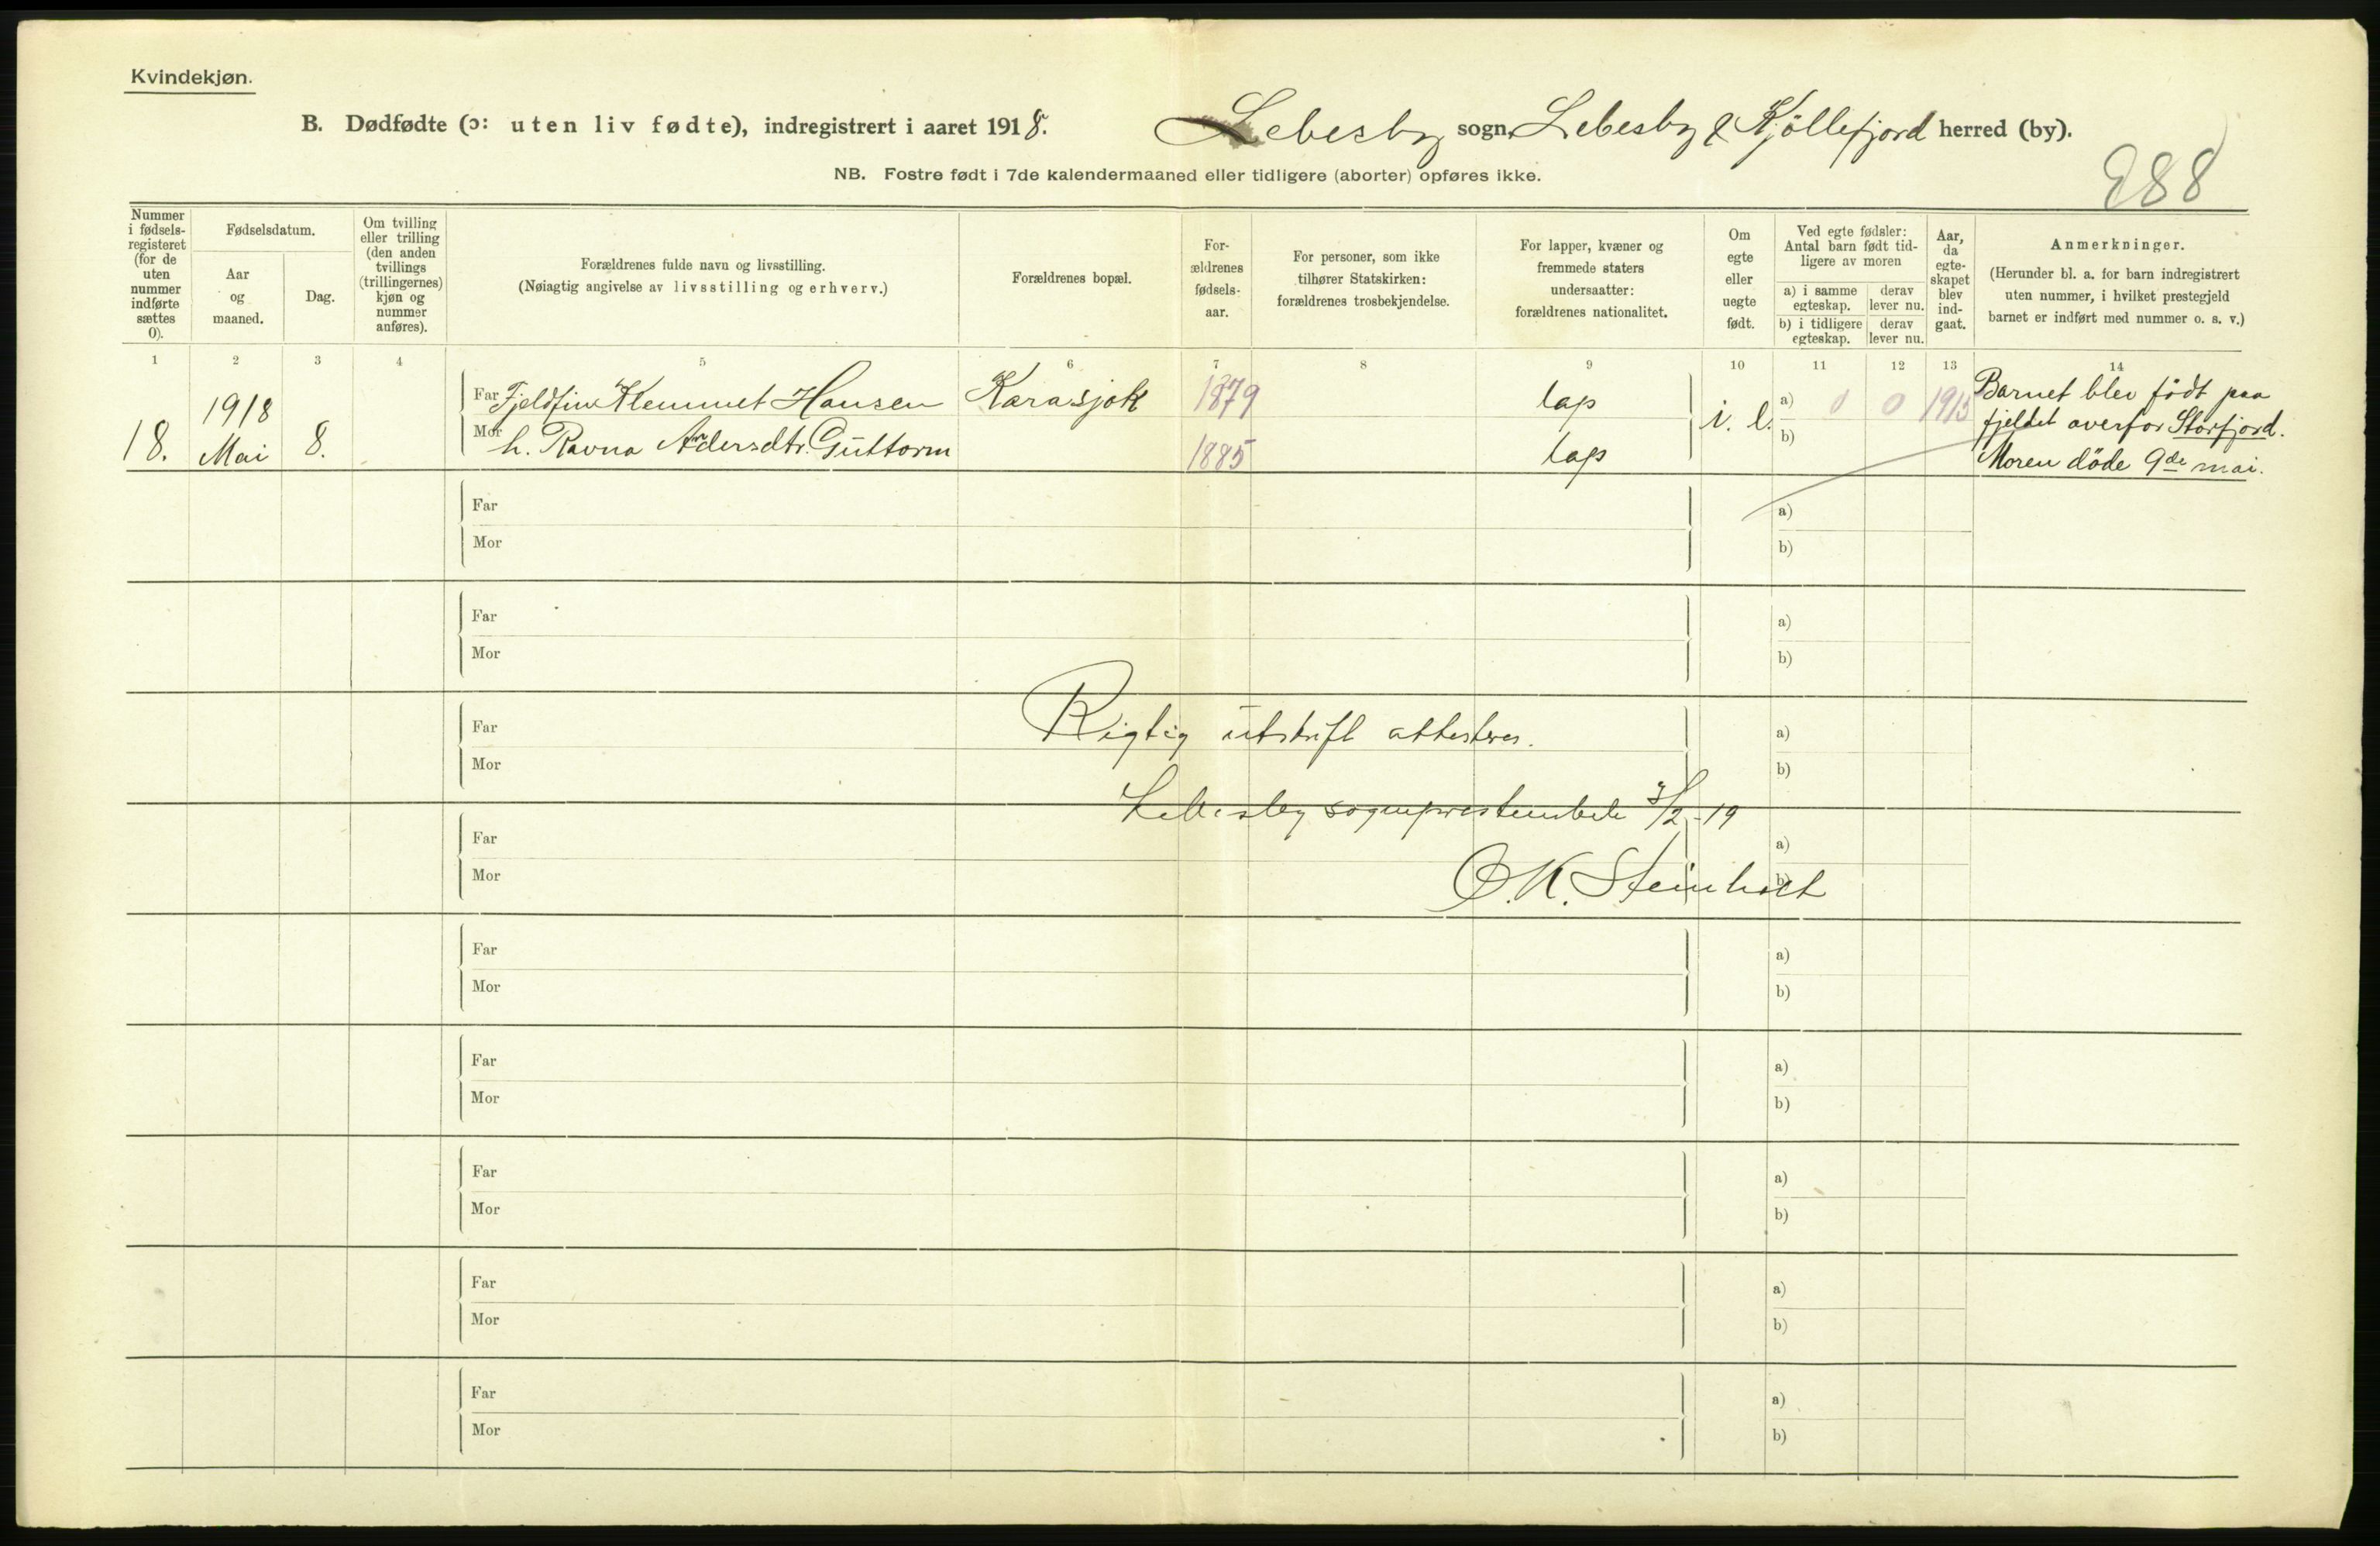 Kvindekjøn.
B. Dødfødte (ɔ: uten liv fødte), indregistrert i aaret 1918. Lebesby sogn, Lebesby & Kjöllefjord herred (by).
NB. Fostre født i 7de kalendermaaned eller tidligere (aborter) opføres ikke.
288
Nummer i fødsels-registeret (for de uten nummer indførte sættes 0).
Fødselsdatum.
Aar og maaned.
Dag.
Om tvilling eller trilling (den anden tvillings (trillingernes) kjøn og nummer anføres).
Forældrenes fulde navn og livsstilling.
(Nøiagtig angivelse av livsstilling og erhverv.)
Forældrenes bopæl.
For-ældrenes fødsels-aar.
For personer, som ikke tilhører Statskirken: forældrenes trosbekjendelse.
For lapper, kvæner og fremmede staters undersaatter: forældrenes nationalitet.
Om egte eller uegte født.
Ved egte fødsler: Antal barn født tid-ligere av moren
a) i samme egteskap.
derav lever nu.
b) i tidligere egteskap.
derav lever nu.
Aar, da egte-skapet blev ind-gaat.
Anmerkninger.
(Herunder bl. a. for barn indregistrert uten nummer, i hvilket prestegjeld barnet er indført med nummer o. s. v.)
1 2 3 4 5 6 7 8 9 10 11 12 13 14
18. 1918 Mai 8.
Far Fjeldfin Klemmet Hansen Karasjok 1879 lap
Mor h. Ravna Andersdtr. Guttorm 1885 lap
i. l. a) 0 0 1915
b)
Barnet blev født paa
fjeldet overfor Storfjord.
Moren döde 9de mai.
Far a)
Mor b)
Far a)
Mor b)
Far a)
Mor b)
Rigtig utskrift attesteres.
Lebesby sogneprestembede 3/2 - 19
Far a)
Mor b)
O. K. Steinholt
Far a)
Mor b)
Far a)
Mor b)
Far a)
Mor b)
Far a)
Mor b)
Far a)
Mor b)